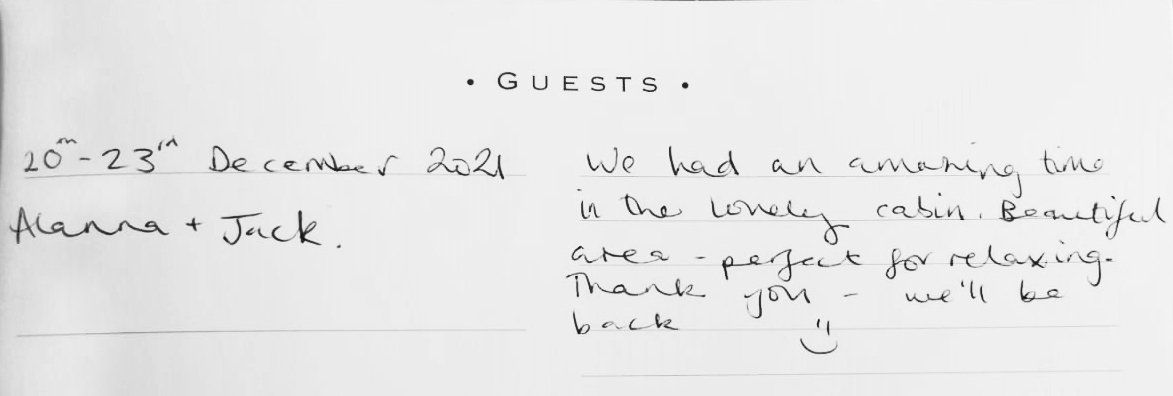 • GUESTS •
20th - 23rd December 2021
Alanna + Jack.
We had an amazing time
in the lonely cabin. Beautiful
area - perfect for relaxing.
Thank you - we'll be
back